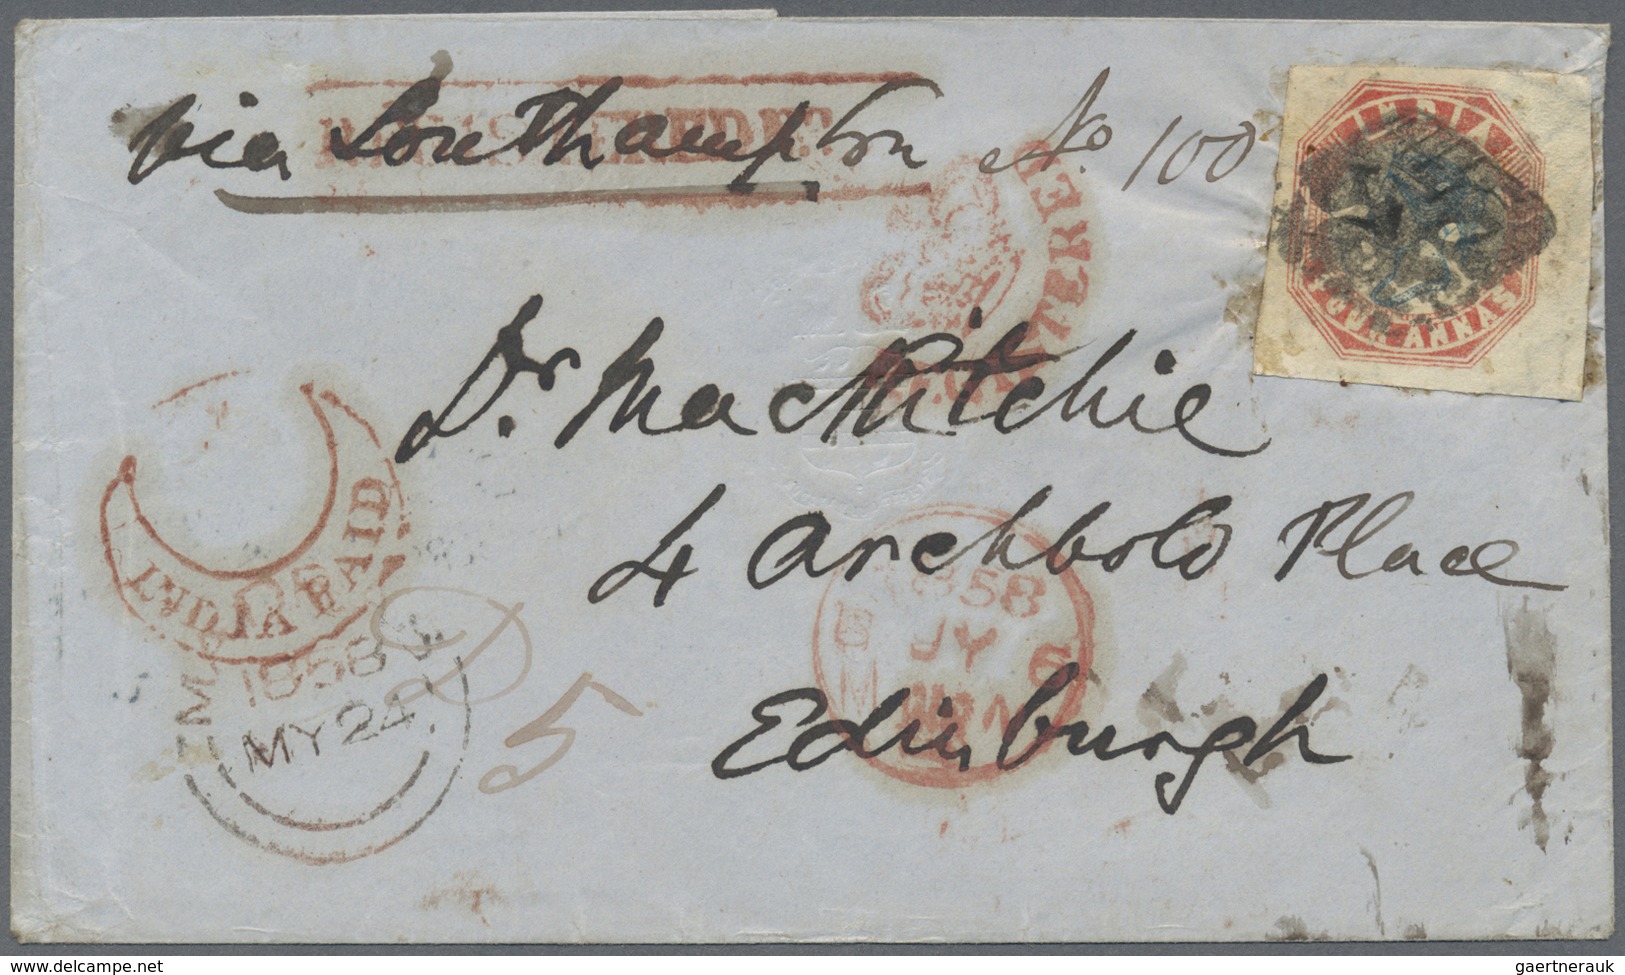 via Southampton No 100
REGISTERED
REGISTERED
INDIA
FOUR ANNAS
Dr MacRitchie
4 Archbold Place
Edinburgh
INDIA PAID
1858
MY 24
5
1858
JY 6
gaertnerauk